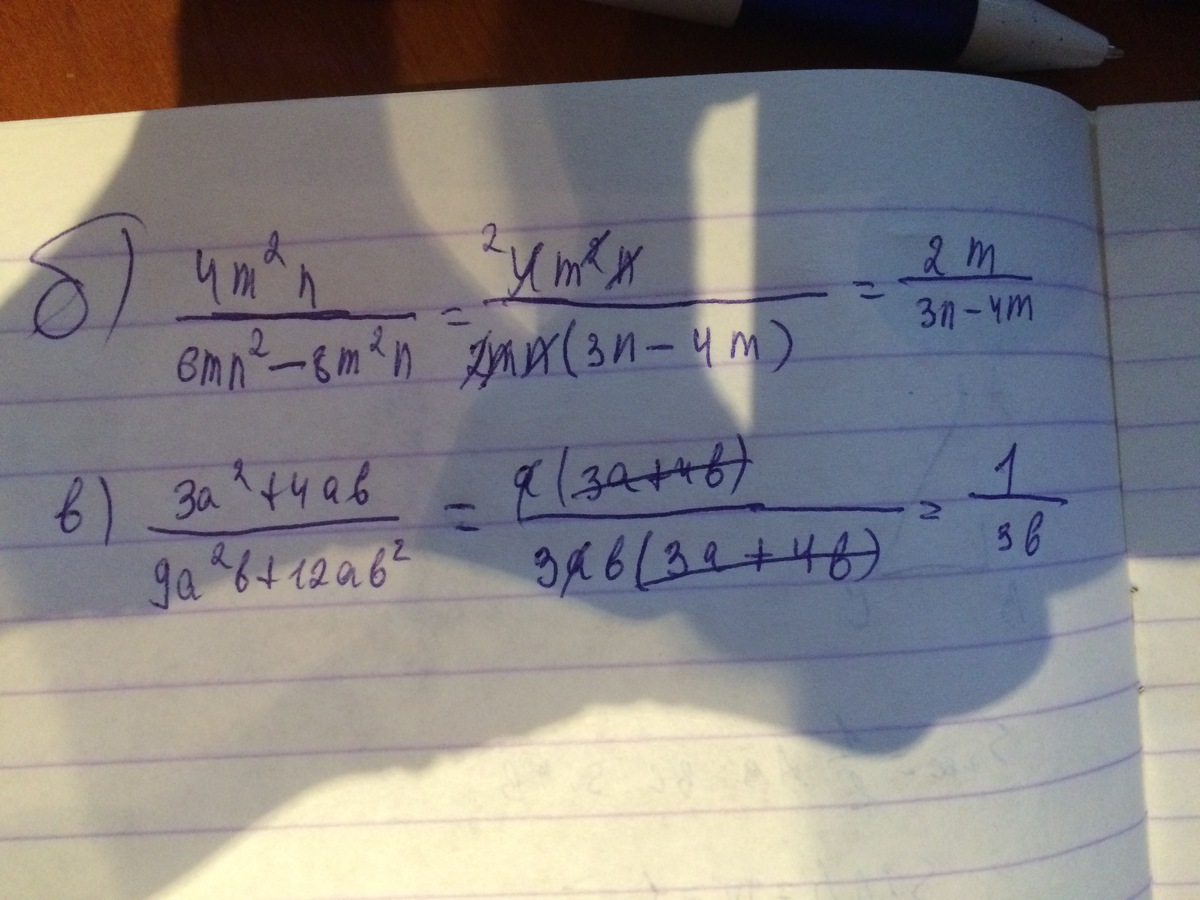 б) 4m²n / 6mn² − 8m²n = ²4m²n / 2mn(3n − 4m) = 2m / 3n − 4m
в) 3a² + 4aв / 9a²в + 12aв² = a(3a + 4в) / 3aв(3a + 4в) = 1 / 3в